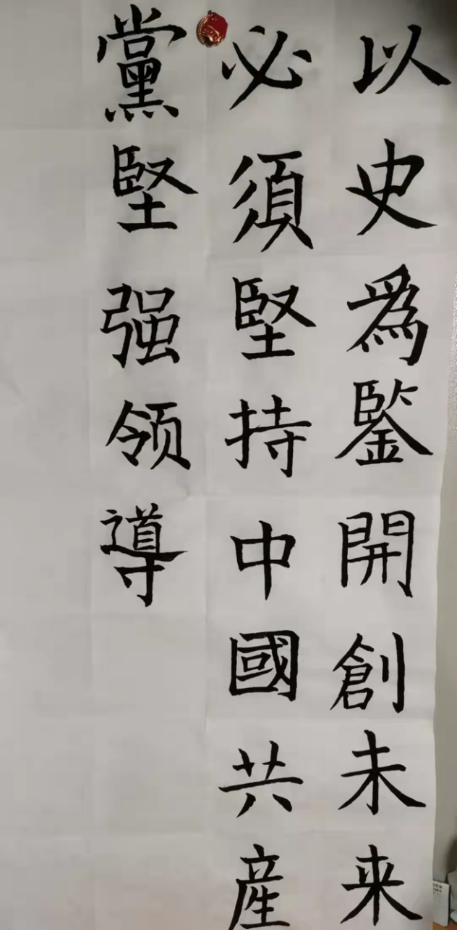 以史為鍳開創未来
必須堅持中國共産
黨堅强领導